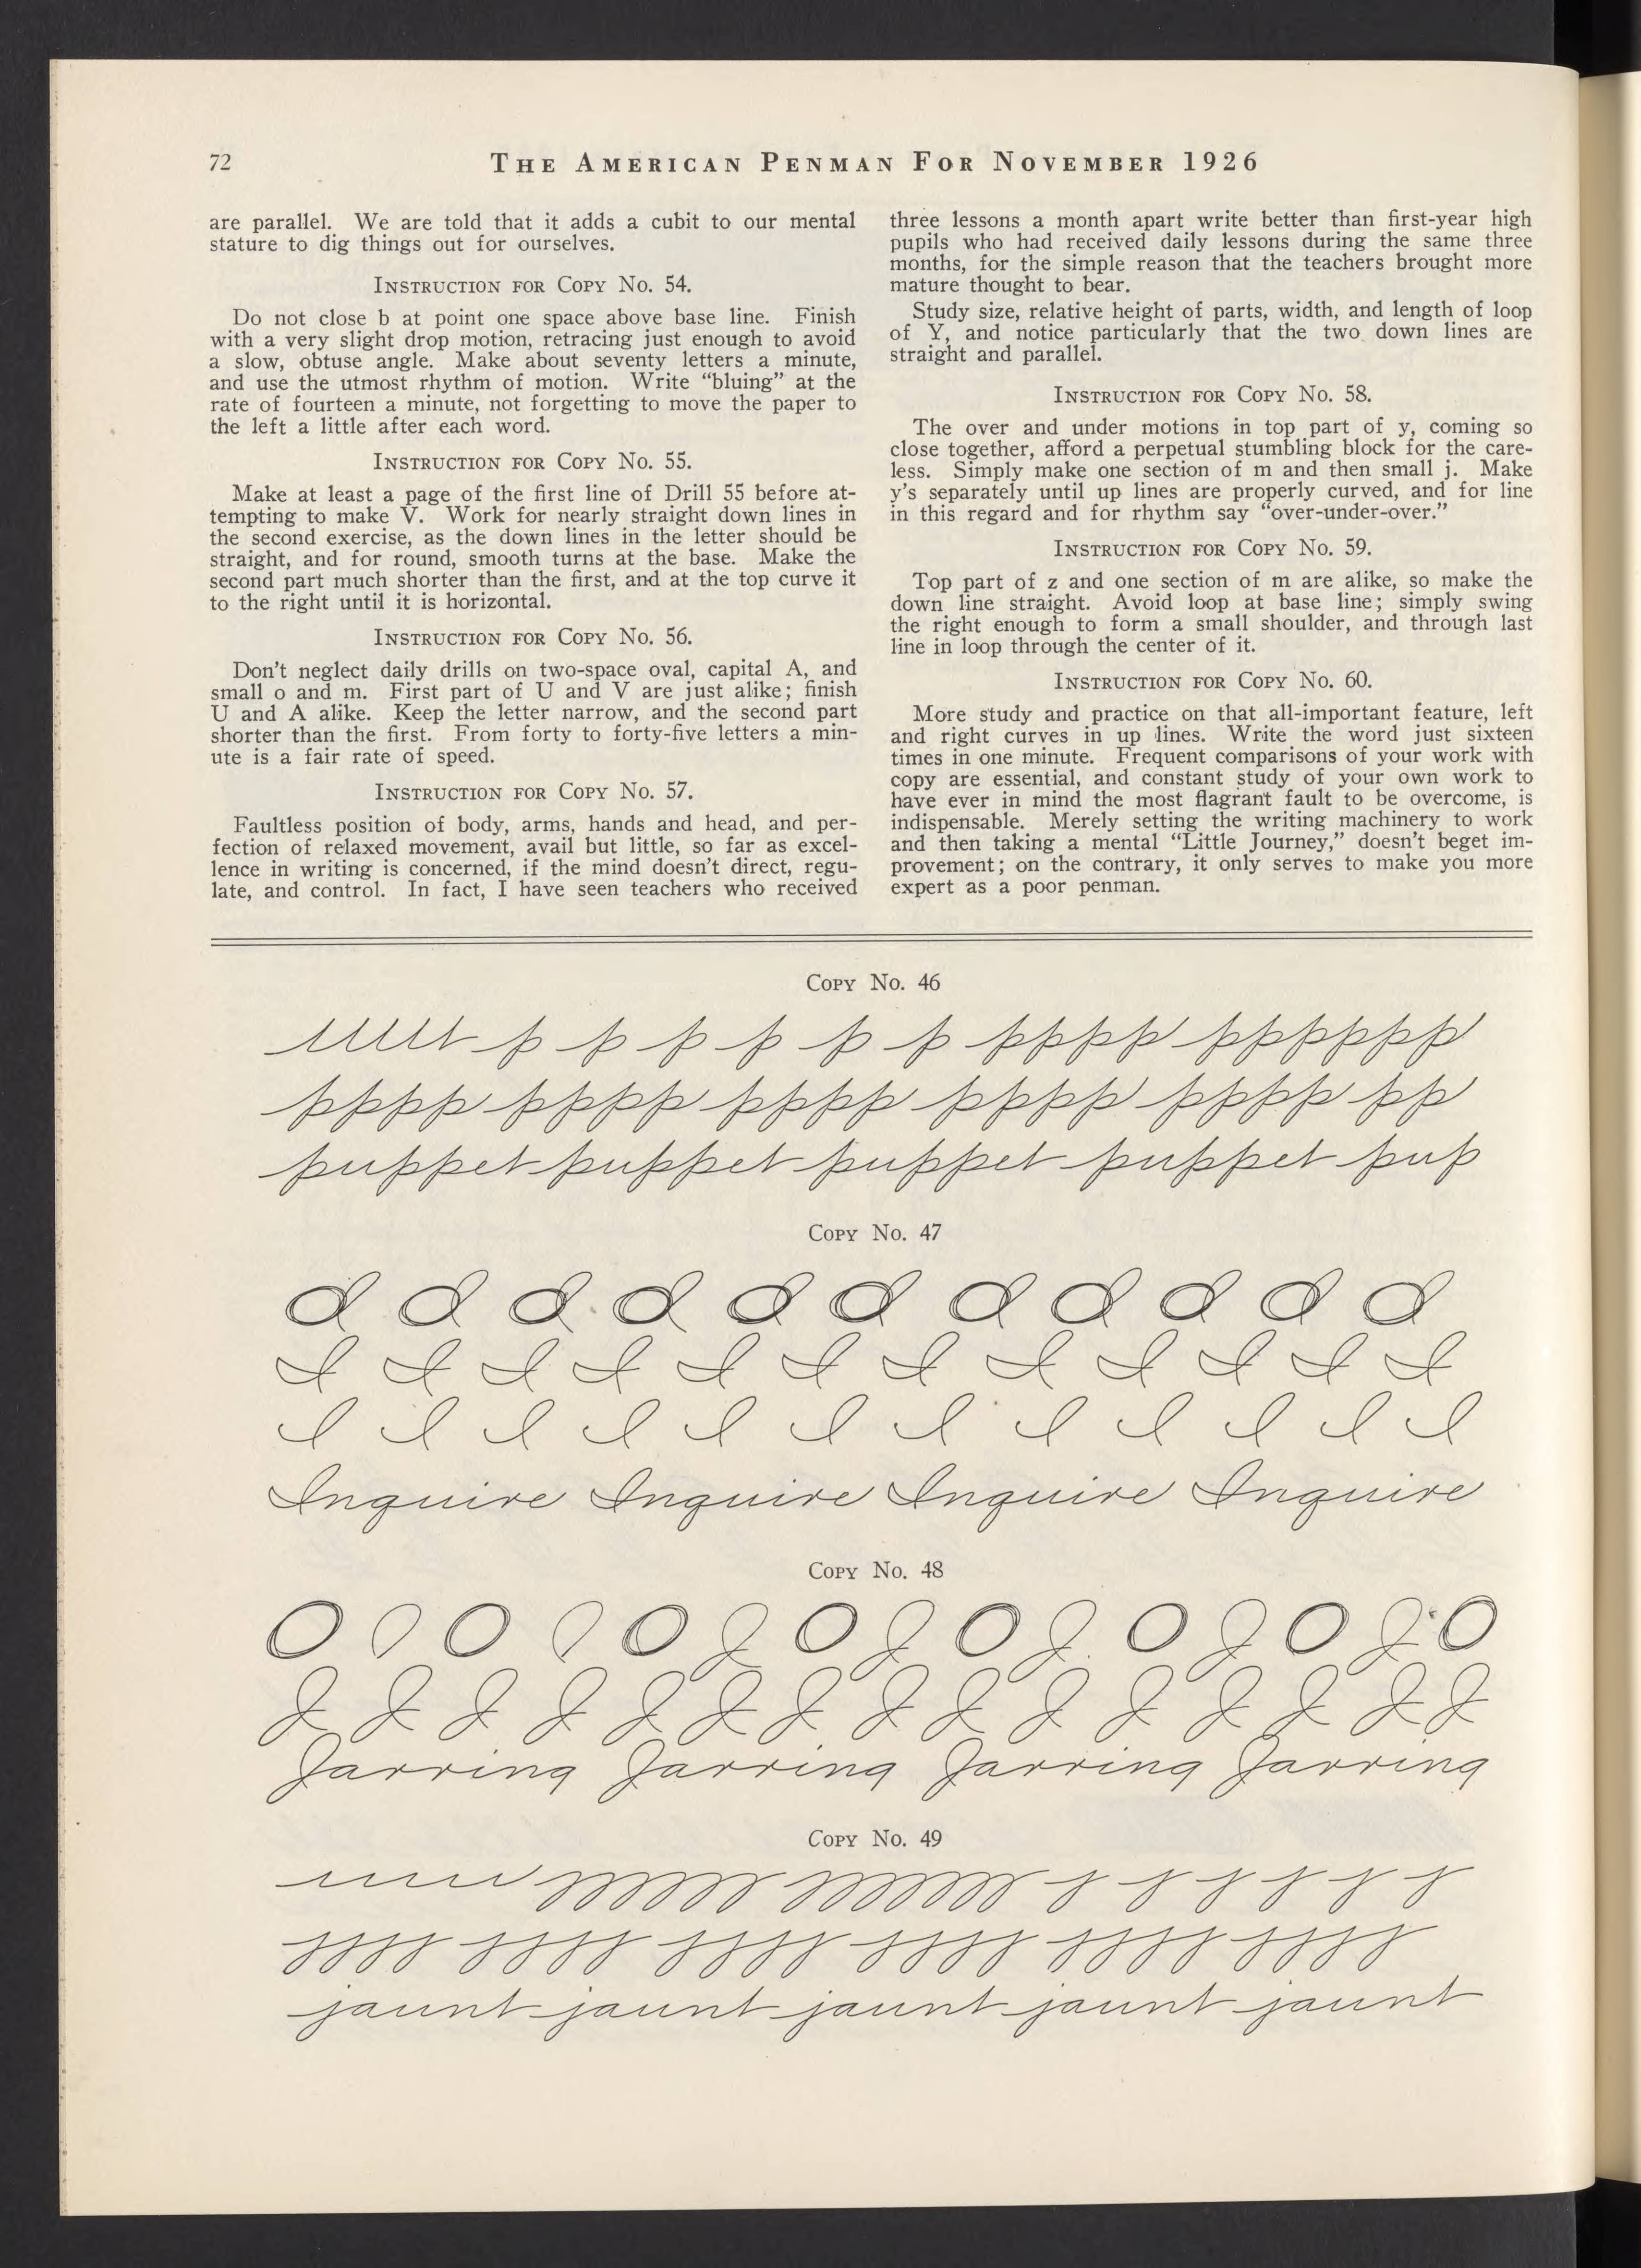 72
THE AMERICAN PENMAN FOR NOVEMBER 1926
are parallel. We are told that it adds a cubit to our mental
stature to dig things out for ourselves.
INSTRUCTION FOR COPY NO. 54.
Do not close b at point one space above base line. Finish
with a very slight drop motion, retracing just enough to avoid
a slow, obtuse angle. Make about seventy letters a minute,
and use the utmost rhythm of motion. Write “bluing” at the
rate of fourteen a minute, not forgetting to move the paper to
the left a little after each word.
INSTRUCTION FOR COPY NO. 55.
Make at least a page of the first line of Drill 55 before at-
tempting to make V. Work for nearly straight down lines in
the second exercise, as the down lines in the letter should be
straight, and for round, smooth turns at the base. Make the
second part much shorter than the first, and at the top curve it
to the right until it is horizontal.
INSTRUCTION FOR COPY NO. 56.
Don't neglect daily drills on two-space oval, capital A, and
small o and m. First part of U and V are just alike; finish
U and A alike. Keep the letter narrow, and the second part
shorter than the first. From forty to forty-five letters a min-
ute is a fair rate of speed.
INSTRUCTION FOR COPY NO. 57.
Faultless position of body, arms, hands and head, and per-
fection of relaxed movement, avail but little, so far as excel-
lence in writing is concerned, if the mind doesn't direct, regu-
late, and control. In fact, I have seen teachers who received
three lessons a month apart write better than first-year high
pupils who had received daily lessons during the same three
months, for the simple reason that the teachers brought more
mature thought to bear.
Study size, relative height of parts, width, and length of loop
of Y, and notice particularly that the two down lines are
straight and parallel.
INSTRUCTION FOR COPY NO. 58.
The over and under motions in top part of y, coming so
close together, afford a perpetual stumbling block for the care-
less. Simply make one section of m and then small j. Make
y's separately until up lines are properly curved, and for line
in this regard and for rhythm say “over-under-over.”
INSTRUCTION FOR COPY NO. 59.
Top part of z and one section of m are alike, so make the
down line straight. Avoid loop at base line; simply swing
the right enough to form a small shoulder, and through last
line in loop through the center of it.
INSTRUCTION FOR COPY NO. 60.
More study and practice on that all-important feature, left
and right curves in up lines. Write the word just sixteen
times in one minute. Frequent comparisons of your work with
copy are essential, and constant study of your own work to
have ever in mind the most flagrant fault to be overcome, is
indispensable. Merely setting the writing machinery to work
and then taking a mental “Little Journey,” doesn't beget im-
provement; on the contrary, it only serves to make you more
expert as a poor penman.
COPY NO. 46
p p p p p p pppp pppppp
pppp pppp pppp pppp pppp pp
puppet puppet puppet puppet pup
COPY NO. 47
I I I I I I I I I I I I
I I I I I I I I I I I I
Inquire Inquire Inquire Inquire
COPY NO. 48
J J J J J J J J J J J J J J J
Jarring Jarring Jarring Jarring
COPY NO. 49
j j j j j j
jjjj jjjj jjjj jjjj jjjj jjjj
jaunt jaunt jaunt jaunt jaunt